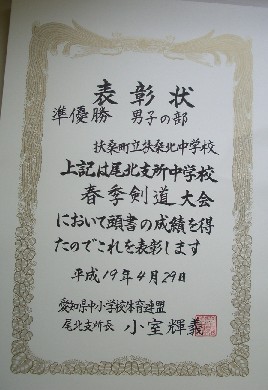 表彰状
準優勝 男子の部
扶桑町立扶桑北中学校
上記は尾北支所中学校
春季剣道大会
において頭書の成績を得
たのでこれを表彰します
平成19年4月29日
愛知県中小学校体育連盟
尾北支所長 小室輝義